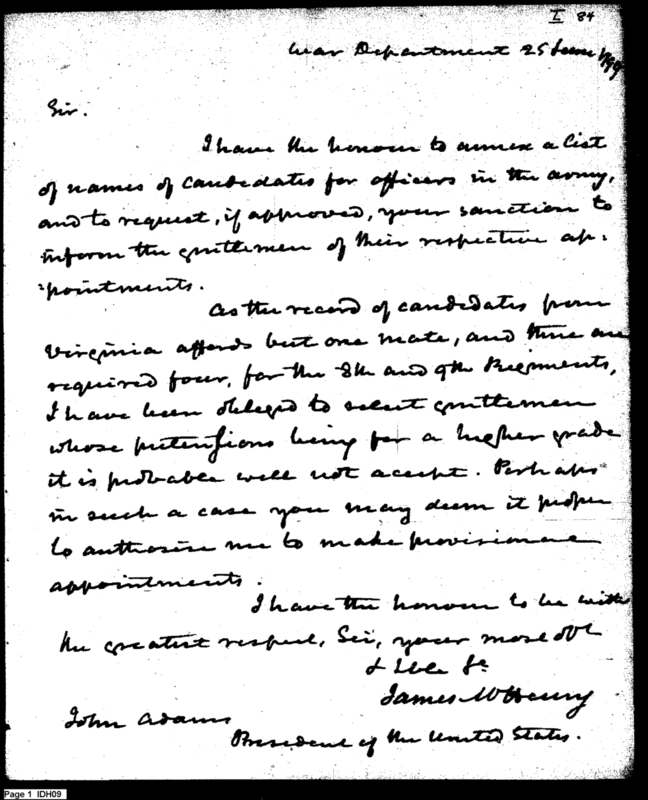 I 84
War Department 25 June 1799
Sir.
I have the honour to annex a list
of names of candidates for officers in the army,
and to request, if approved, your sanction to
inform the gentlemen of their respective ap:
:pointments.
As the record of candidates from
Virginia affords but one mate, and there are
required four, for the 8th and 9th Regiments,
I have been obliged to select gentlemen
whose pretensions being for a higher grade
it is probable will not accept. Perhaps
in such a case you may deem it proper
to authorise me to make provisional
appointments.
I have the honour to be with
the greatest respect, Sir, your most obt
& hble St
James McHenry
John Adams
President of the United States.
Page 1 IDH09